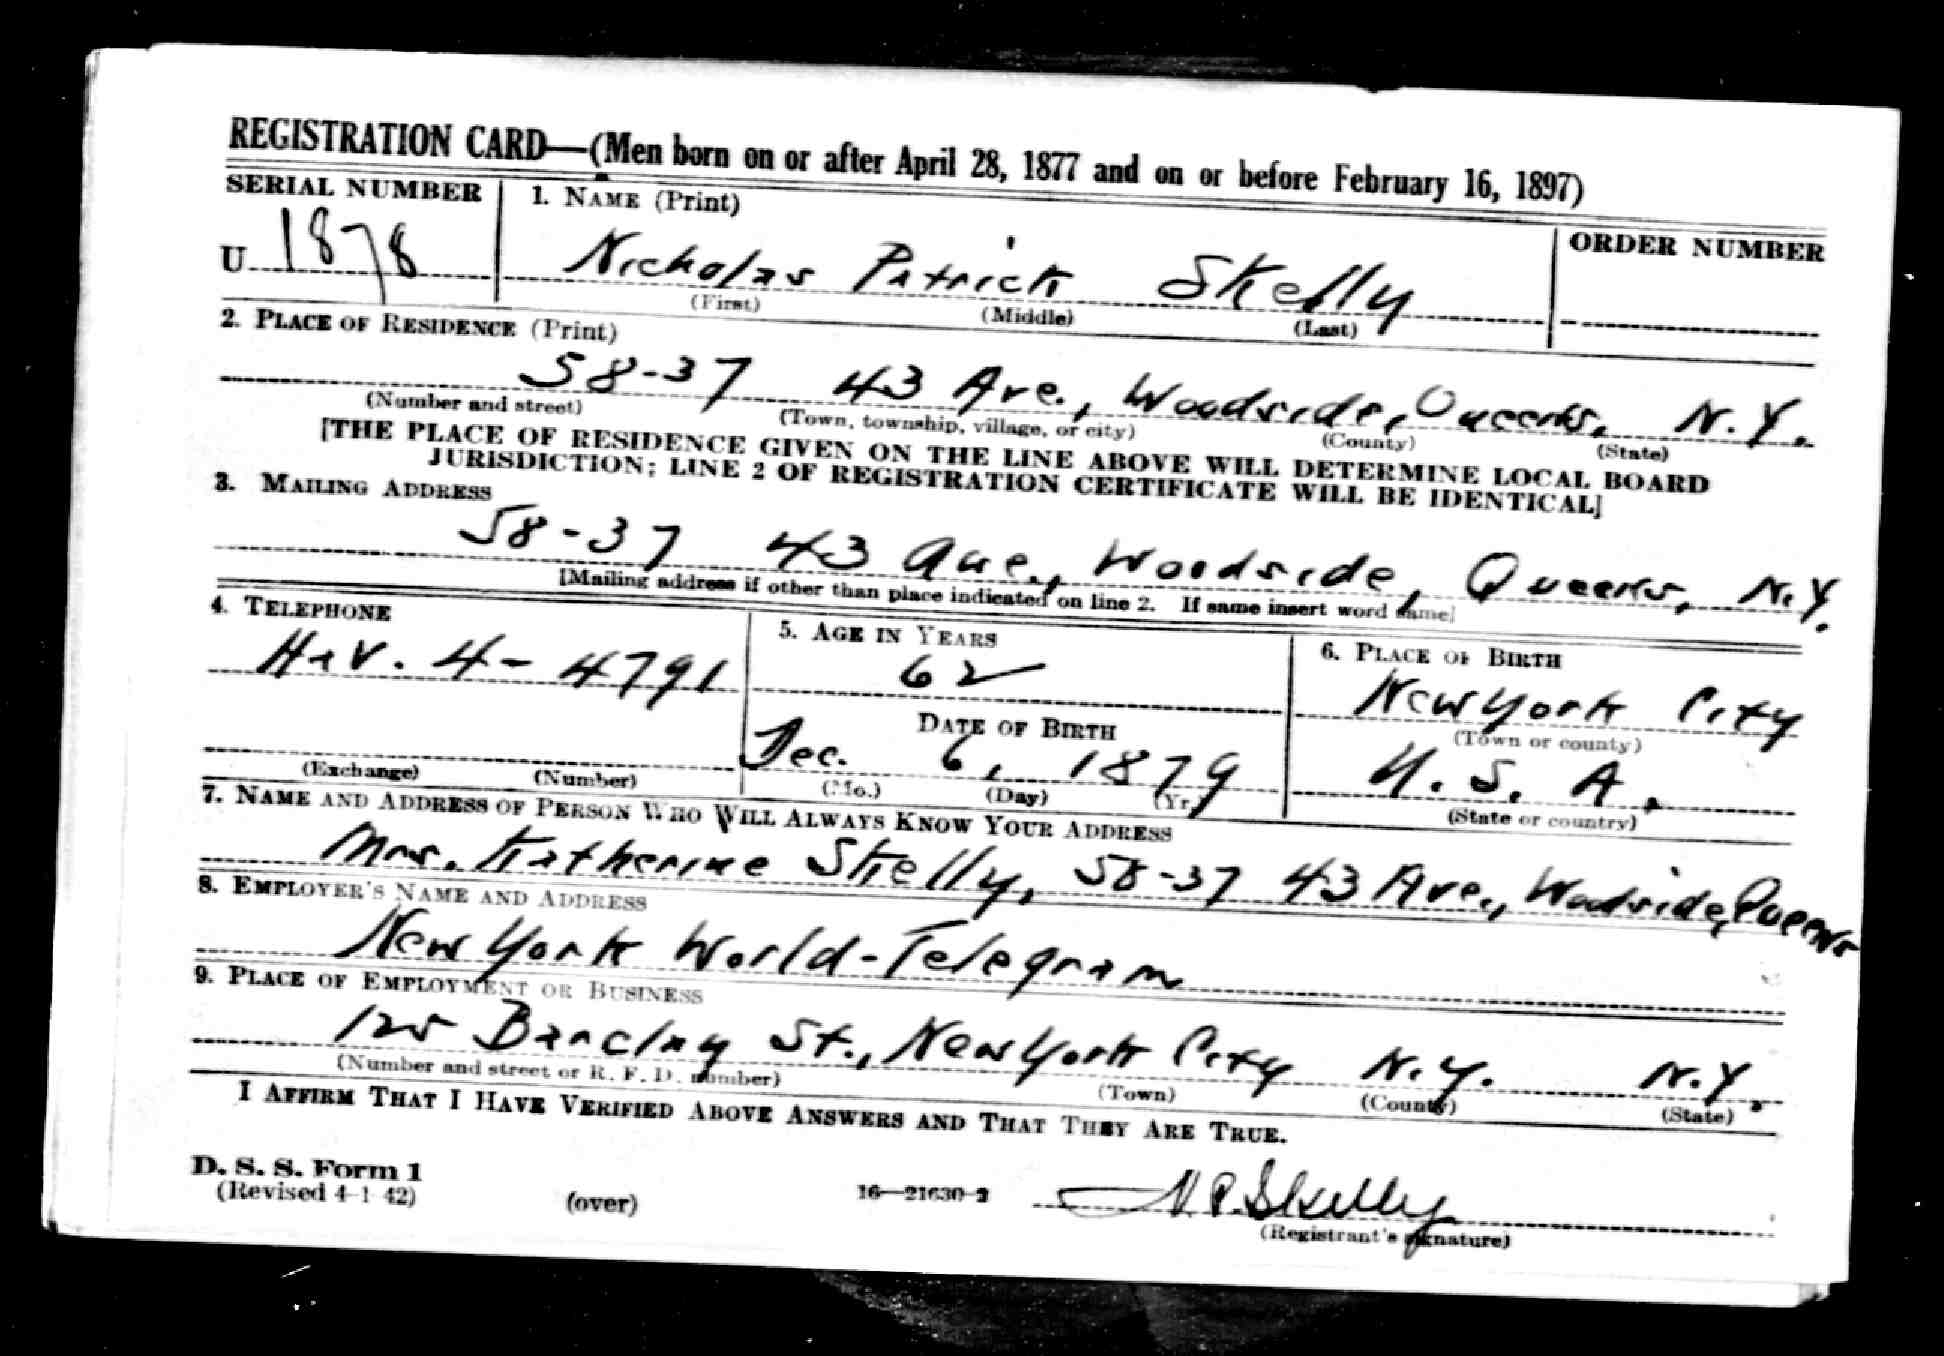 REGISTRATION CARD—(Men born on or after April 28, 1877 and on or before February 16, 1897)
SERIAL NUMBER
1. NAME (Print)
ORDER NUMBER
U 1878
Nicholas Patrick Skelly
(First) (Middle) (Last)
2. PLACE OF RESIDENCE (Print)
58-37 43 Ave., Woodside, Queens, N.Y.
(Number and street) (Town, township, village, or city) (County) (State)
[THE PLACE OF RESIDENCE GIVEN ON THE LINE ABOVE WILL DETERMINE LOCAL BOARD
JURISDICTION; LINE 2 OF REGISTRATION CERTIFICATE WILL BE IDENTICAL]
3. MAILING ADDRESS
58-37 43 Ave., Woodside, Queens, N.Y.
[Mailing address if other than place indicated on line 2. If same insert word same]
4. TELEPHONE
5. AGE IN YEARS
6. PLACE OF BIRTH
Hav. 4-4791
62
New York City
(Town or county)
DATE OF BIRTH
Dec. 6, 1879
U. S. A.
(Exchange) (Number)
(Mo.) (Day) (Yr.)
(State or country)
7. NAME AND ADDRESS OF PERSON WHO WILL ALWAYS KNOW YOUR ADDRESS
Mrs. Katherine Skelly, 58-37 43 Ave., Woodside, Queens
8. EMPLOYER'S NAME AND ADDRESS
New York World-Telegram
9. PLACE OF EMPLOYMENT OR BUSINESS
125 Barclay St., New York City N.Y. N.Y.
(Number and street or R. F. D. number) (Town) (County) (State)
I AFFIRM THAT I HAVE VERIFIED ABOVE ANSWERS AND THAT THEY ARE TRUE.
D. S. S. Form 1
(Revised 4-1-42) (over) 16—21630-2
N.P. Skelly
(Registrant's signature)